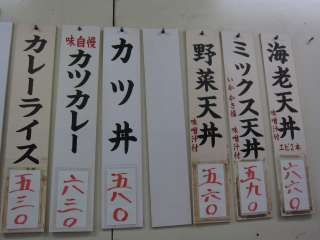 海老天丼
味噌汁付
エビ2本
六六〇
ミックス天丼
味噌汁付
五九〇
野菜天丼
味噌汁付
五六〇
カツ丼
五八〇
味自慢
カツカレー
六三〇
カレーライス
五三〇